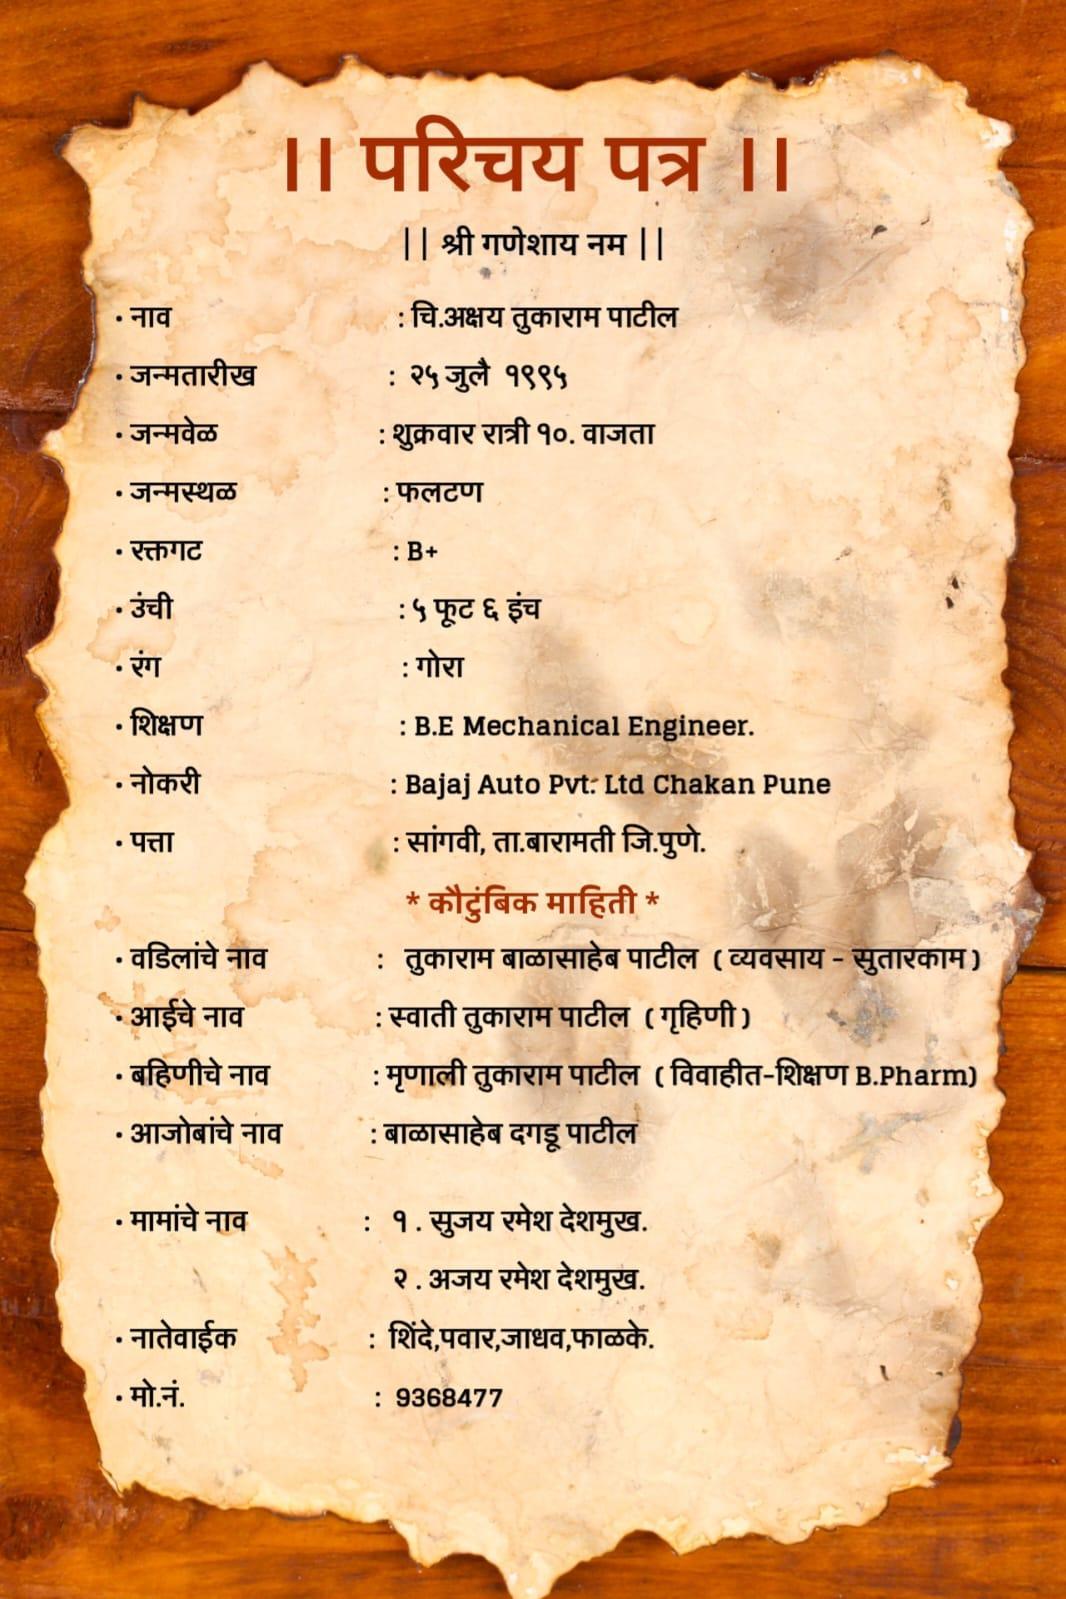 ।। परिचय पत्र ।।
|| श्री गणेशाय नम ||
• नाव : चि.अक्षय तुकाराम पाटील
• जन्मतारीख : २५ जुलै १९९५
• जन्मवेळ : शुक्रवार रात्री १०. वाजता
• जन्मस्थळ : फलटण
• रक्तगट : B+
• उंची : ५ फूट ६ इंच
• रंग : गोरा
• शिक्षण : B.E Mechanical Engineer.
• नोकरी : Bajaj Auto Pvt. Ltd Chakan Pune
• पत्ता : सांगवी, ता.बारामती जि.पुणे.
* कौटुंबिक माहिती *
• वडिलांचे नाव : तुकाराम बाळासाहेब पाटील ( व्यवसाय - सुतारकाम )
• आईचे नाव : स्वाती तुकाराम पाटील ( गृहिणी )
• बहिणीचे नाव : मृणाली तुकाराम पाटील ( विवाहीत-शिक्षण B.Pharm)
• आजोबांचे नाव : बाळासाहेब दगडू पाटील
• मामांचे नाव : १ . सुजय रमेश देशमुख.
२ . अजय रमेश देशमुख.
• नातेवाईक : शिंदे,पवार,जाधव,फाळके.
• मो.नं. : 9368477